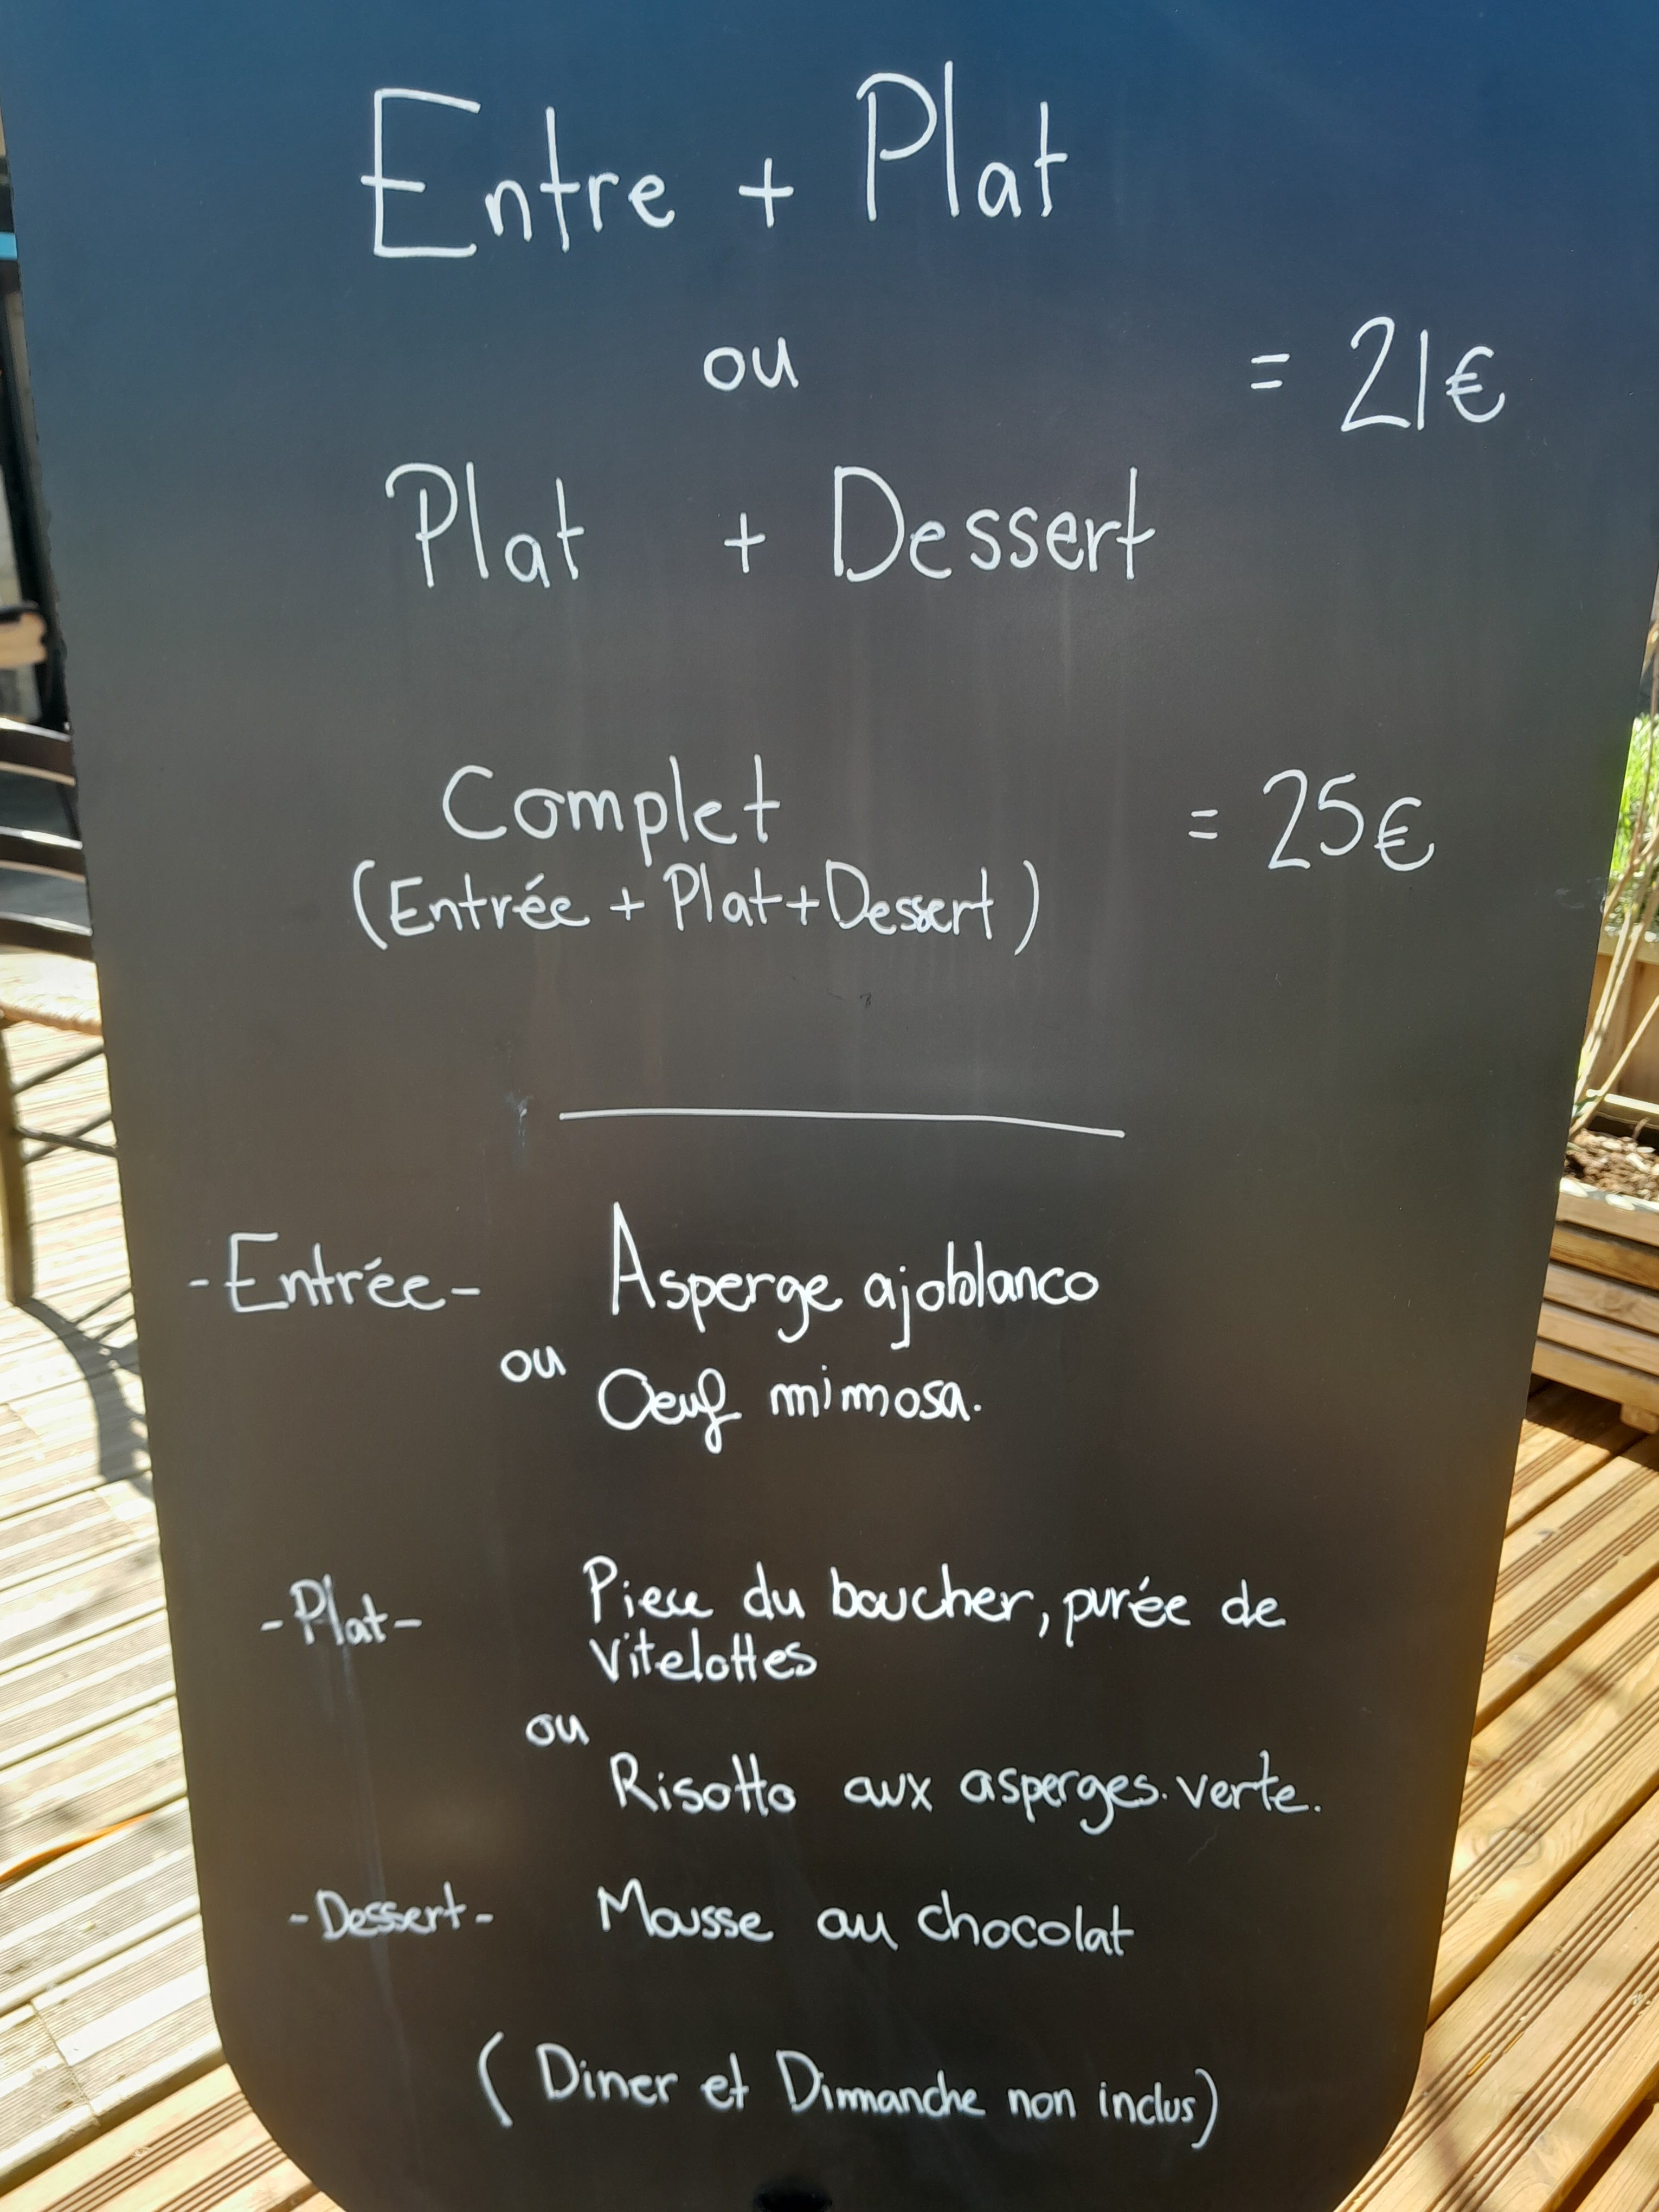 Entre + Plat
ou = 21€
Plat + Dessert
Complet = 25€
(Entrée + Plat+Dessert)
-Entrée- Asperge ajoblanco
ou
Oeuf mimosa.
-Plat- Piece du boucher, purée de
vitelottes
ou
Risotto aux asperges. verte.
-Dessert- Mousse au chocolat
(Diner et Dimanche non inclus)